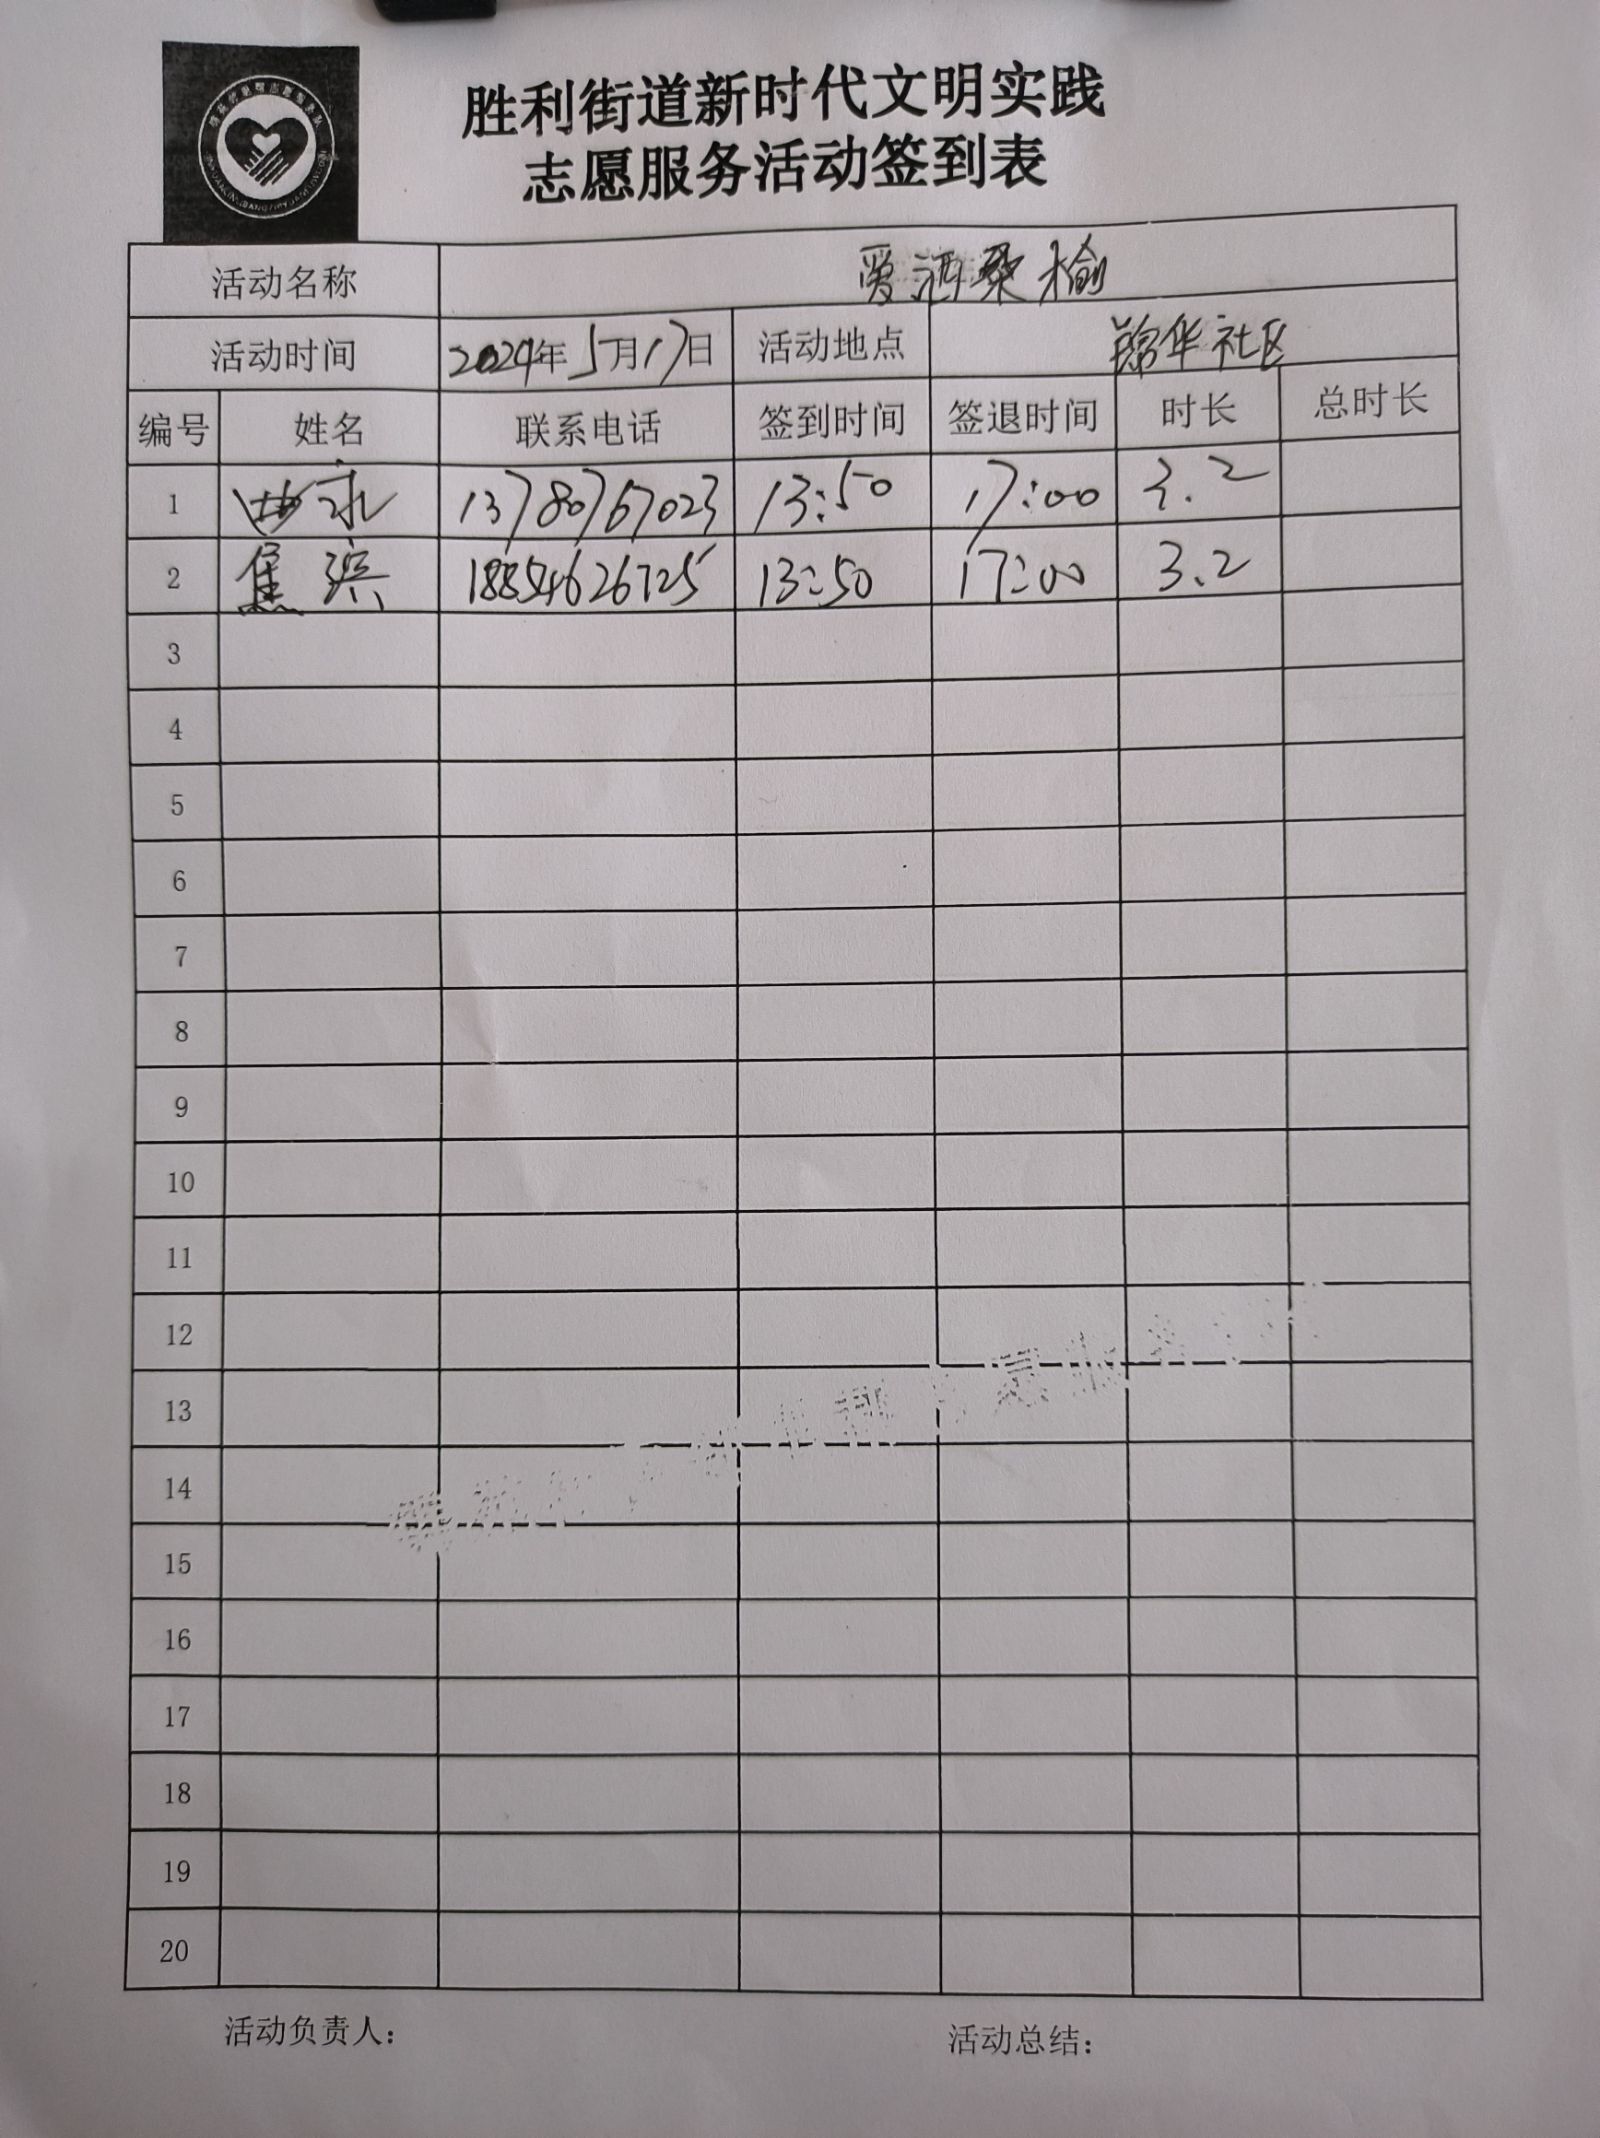 胜利街道新时代文明实践
志愿服务活动签到表
活动名称 爱洒桑榆
活动时间 2024年5月17日 活动地点 锦华社区
编号 姓名 联系电话 签到时间 签退时间 时长 总时长
1 曲永 13780767023 13:50 17:00 3.2
2 焦滨 18854626725 13:50 17:00 3.2
3
4
5
6
7
8
9
10
11
12
13
14
15
16
17
18
19
20
活动负责人： 活动总结：